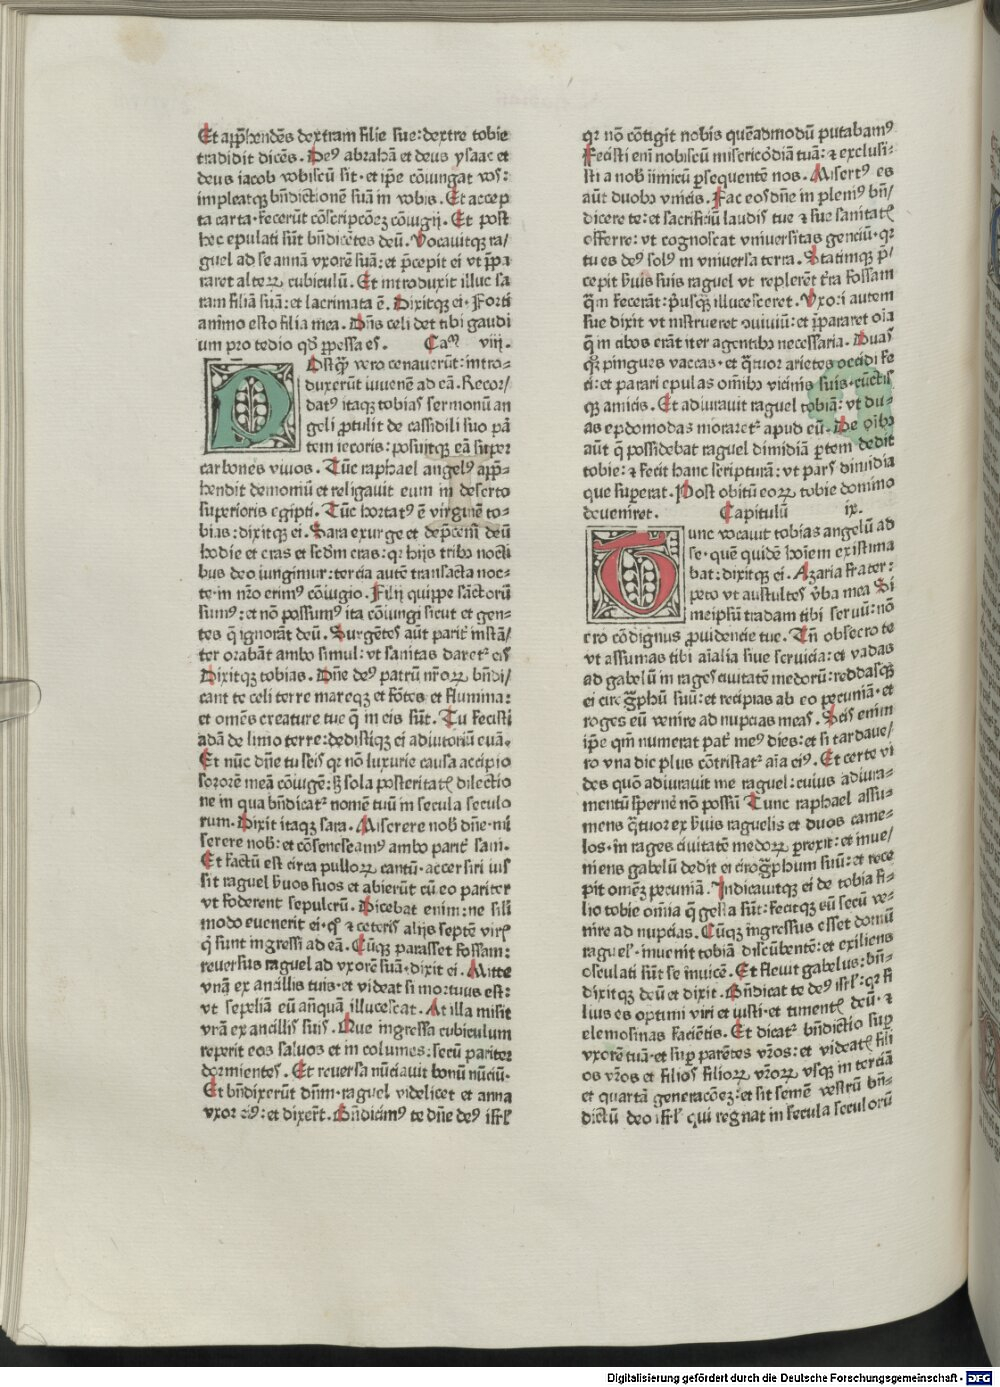 Et apprhendēs dextram filie sue: dextre tobie
tradidit dicēs. Deꝰ abrahā et deus ysaac et
deus iacob vobiscū sit · et ip̄e cōiungat vos:
impleatqꝫ bn̄dictionē suā in vobis. Et accep
ta carta · fecerūt cōscripcōeꝫ cōiugij. Et post
hec epulati sūt bn̄dicētes deū. Vocauitqꝫ ra/
guel ad se annā vxorē suā: et p̄cepit ei vt p̄pa
raret alteꝝ cubiculū. Et introduxit illuc sa
ram filiā suā: et lacrimata ē. Dixitqꝫ ei · Forti
animo esto filia mea. Dn̄s celi det tibi gaudi
um pro tedio qd̄ ꝑpessa es. Cam̄ viij.
Ostqᷓ vero cenauerūt: intro-
duxerūt iuuenē ad eā. Recor/
datꝰ itaqꝫ tobias sermonū an
geli ꝓtulit de cassidili suo pā
tem iecoris: posuitqꝫ eā super
carbones viuos. Tūc raphael angelꝰ app̄-
hendit demoniū et religauit eum in deserto
superioris egipti. Tūc hortatꝰ ē virginē to-
bias: dixitqꝫ ei. Sara exurge et dep̄cem̄ deū
hodie et cras et scdm̄ cras: qꝛ hijs tribꝰ nocti
bus deo iungimur: tercia autē transacta noc-
te · in nr̄o erimꝰ cōiugio. Filij quippe sāctorū
sumꝰ: et nō possumꝰ ita cōiungi sicut et gen-
tes q̄ ignorāt deū. Surgētes aūt parit̄ instā/
ter orabāt ambo simul: vt sanitas daret᷑ eis
Dixitqꝫ tobias. Dn̄e deꝰ patrū nr̄oꝝ bn̄di/
cant te celi terre mareqꝫ et fōtes et flumina:
et omēs creature tue q̄ in eis sūt. Tu fecisti
adā de limo terre: dedistiqꝫ ei adiutoriū euā.
Et nūc dn̄e tu scis qꝛ nō luxurie causa accipio
sororē meā cōiugē: sꝫ sola posteritatꝭ dilectio
ne in qua bn̄dicat᷑ nomē tuū in secula seculo
rum. Dixit itaqꝫ sara. Miserere nob̄ dn̄e · mi
serere nob̄: et cōsenescamꝰ ambo parit̄ sani.
Et factū est circa pulloꝝ cantū · accersiri ius
sit raguel s̄uos suos et abierūt cū eo pariter
vt foderent sepulcrū. Dicebat enim: ne sili
modo euenerit ei · qd̄ ⁊ ceteris alijs septē virꝭ
q̄ sunt ingressi ad eā. Cūqꝫ parasset fossam:
reuersus raguel ad vxorē suā · dixit ei. Mitte
vnā ex ancillis tuis · et videat si mortuus est:
vt sepeliā eū anqᷓ illucescat. At illa misit
vnā ex ancillis suis. Que ingressa cubiculum
reperit eos saluos et in columes: secū pariter
dormientes. Et reuersa nūciauit bonū nūciū.
Et bn̄dixerūt dn̄m · raguel videlicet et anna
vxor eiꝰ: et dixert̄. Bn̄dicimꝰ te dn̄e deꝰ isrl̄
qꝛ nō cōtigit nobis quēadmodū putabamꝰ
Fecisti eni nobiscū misericordiā tuā: ⁊ exclusi-
sti a nob̄ inimicū ꝑsequentē nos. Misertꝰ es
aūt duobꝰ vnicis. Fac eos dn̄e in pleniꝰ bn̄/
dicere te: et sacrificiū laudis tue ⁊ sue sanitatꝭ
offerre: vt cognoscat vniuersitas genciū · qꝛ
tu es deꝰ solꝰ in vniuersa terra. Statimqꝫ p̄/
cepit s̄uis suis raguel vt replerēt t̄ra fossam
qᷓ fecerāt: pusqᷓ illucesceret. Vxori autem
sue dixit vt instrueret ↄuiuiū: et p̄pararet oīa
q̄ in cibos erāt iter agentibꝰ necessaria. Duas
qꝫ pingues vaccas · et qᷓtuor arietes occidi fe
ci: et parari epulas om̄ibꝰ vicinis suis · cūctis
qꝫ amicis. Et adiurauit raguel tobiā: vt du-
as epdomodas moraret᷑ apud eū. De oībꝰ
aūt q̄ possidebat raguel dimidiā ꝑtem dedit
tobie: ⁊ fecit hanc scripturā: vt pars dimidia
que superat. Post obitū eoꝝ tobie domino
deueniret. Capitulū ix.
unc vocauit tobias angelū ad
se · quē quidē hoīem existima
bat: dixitqꝫ ei. Azaria frater:
peto vt auscultes v̄ba mea Si
meipsū tradam tibi seruū: nō
ero cōdignus ꝓuidencie tue. Tn̄ obsecro te
vt assumas tibi aīalia siue seruicia: et vadas
ad gabelū in rages ciuitatē medorū: reddasqꝫ
ei cirogᷓphū suū: et recipias ab eo pecuniā · et
roges eū venire ad nupcias meas. Scis enim
ip̄e qm̄ numerat pat̄ meꝰ dies: et si tardaue/
ro vna die plus cōtristat᷑ aīa eiꝰ. Et certe vi
des quō adiurauit me raguel: cuius adiura-
mentū spernē nō possū Tunc raphael assu-
mens qᷓtuor ex s̄uis raguelis et duos came-
los · in rages ciuitatē medoꝝ ꝑrexit: et inue/
niens gabelū dedit ei cirogᷓphum suū: et rece
pit omēꝫ pecuniā. Indicauitqꝫ ei de tobia fi-
lio tobie om̄ia q̄ gesta sūt: fecitqꝫ eū secū ve-
nire ad nupcias. Cūqꝫ ingressus esset domū
raguelˢ · inuenit tobiā discūbentē: et exiliens
osculati sūt se inuicē. Et fleuit gabelus: bn̄-
dixitqꝫ deū et dixit. Bn̄dicat te deꝰ isrl̄: qꝛ fi
lius es optimi viri et iusti · et timentꝭ deū · ⁊
elemosinas faciētis. Et dicat᷑ bn̄dictio suꝑ
vxorē tuā · et suꝑ parētes vr̄os: et videatꝭ fili
os vr̄os et filios filioꝝ vr̄oꝝ vsqꝫ in terciā
et quartā generacōeꝫ: et sit semē vestrū bn̄-
dictū deo isrl̄ qui regnat in secula seculorū
Digitalisierung gefördert durch die Deutsche Forschungsgemeinschaft - DFG